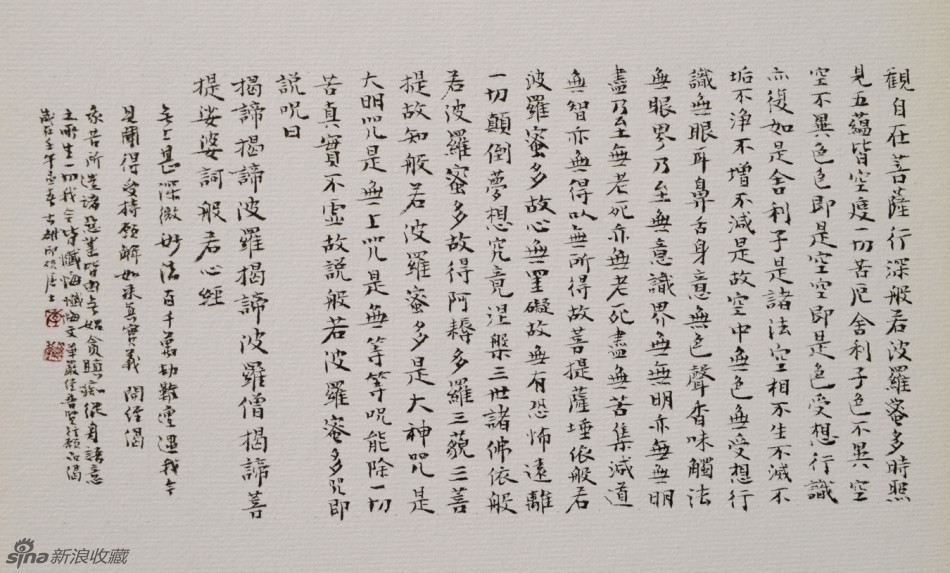 觀自在菩薩行深般若波羅蜜多時照
見五蘊皆空度一切苦厄舍利子色不異空
空不異色色即是空空即是色受想行識
亦復如是舍利子是諸法空相不生不滅不
垢不淨不增不減是故空中無色無受想行
識無眼耳鼻舌身意無色聲香味觸法
無眼界乃至無意識界無無明亦無無明
盡乃至無老死亦無老死盡無苦集滅道
無智亦無得以無所得故菩提薩埵依般若
波羅蜜多故心無罣礙故無有恐怖遠離
一切顛倒夢想究竟涅槃三世諸佛依般
若波羅蜜多故得阿耨多羅三藐三菩
提故知般若波羅蜜多是大神咒是
大明咒是無上咒是無等等咒能除一切
苦真實不虛故說般若波羅蜜多咒即
說咒曰
揭諦揭諦波羅揭諦波羅僧揭諦菩
提娑婆詞般若心經
無上甚深微妙法百千萬劫難遭遇我今
見聞得受持願解如來真實義 開經偈
我昔所造諸惡業皆由無始貪瞋痴從身語意
之所生一切我今皆懺悔 懺悔文 華嚴經普賢行願品偈
歲在壬午
sina新浪收藏